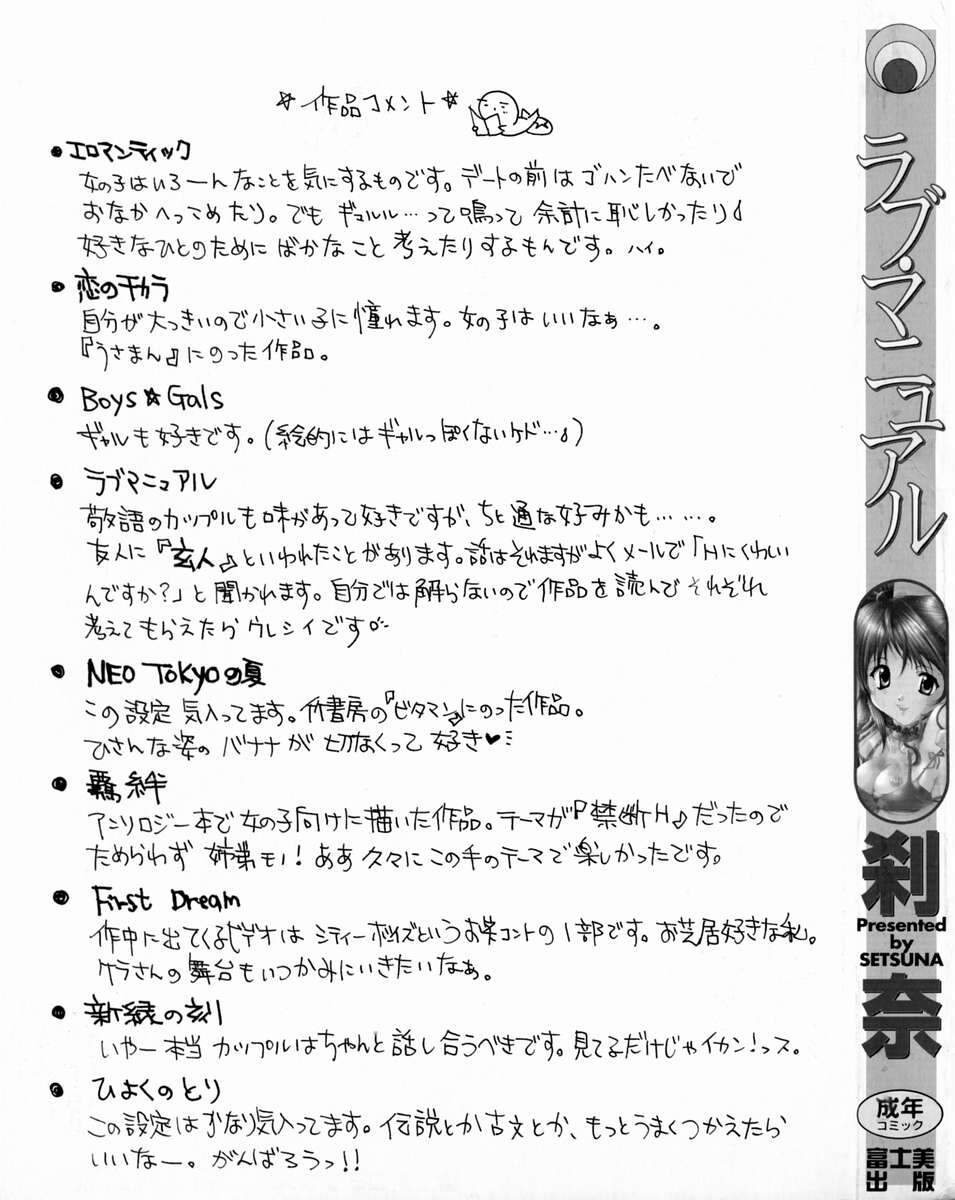 ☆作品コメント☆
●エロマンティック
女の子はいろーんなことを気にするものです。デートの前はゴハンたべないで
おなかへっこめたり。でも ギュルル…って鳴って 余計に恥しかったり♩
好きなひとのために ばかなこと 考えたりするもんです。ハイ。
●恋のチカラ
自分が大っきいので小さい子に憧れます。女の子はいいなぁ…。
『うさまん』にのった作品。
●Boys☆Gals
ギャルも好きです。(絵的にはギャルっぽくないケド…♩)
●ラブマニュアル
敬語のカップルも味があって好きですが、ちと通な好みかも……。
友人に『玄人』といわれたことがあります。話はそれますがよくメールで「Hにくわしい
んですか?」と聞かれます。自分では解らないので作品を読んで それぞれ
考えてもらえたら ウレシイです
●NEO TOKYOの夏
この設定 気入ってます。竹書房の『ビタマン』にのった作品。
ひさんな姿の バナナが 切なくって 好き♥
●羈絆
アンソロジー本で女の子向けに描いた作品。テーマが『禁断H』だったので
ためらわず 姉弟モノ!ああ 久々にこの手のテーマで楽しかったです。
●First Dream
作中に出てくるビデオは シティーボーイズというお笑コントの1部です。お芝居好きな私。
ケラさんの舞台もいつかみにいきたいなぁ。
●新緑の刻
いやー本当 カップルはちゃんと話し合うべきです。見てるだけじゃイカン!っス。
●ひよくのとり
この設定はかなり気入ってます。伝説とか古文とか、もっとうまくつかえたら
いいなー。がんばろうっ!!
ラブ・マニュアル
刹奈
Presented
by
SETSUNA
成年
コミック
富士美
出版